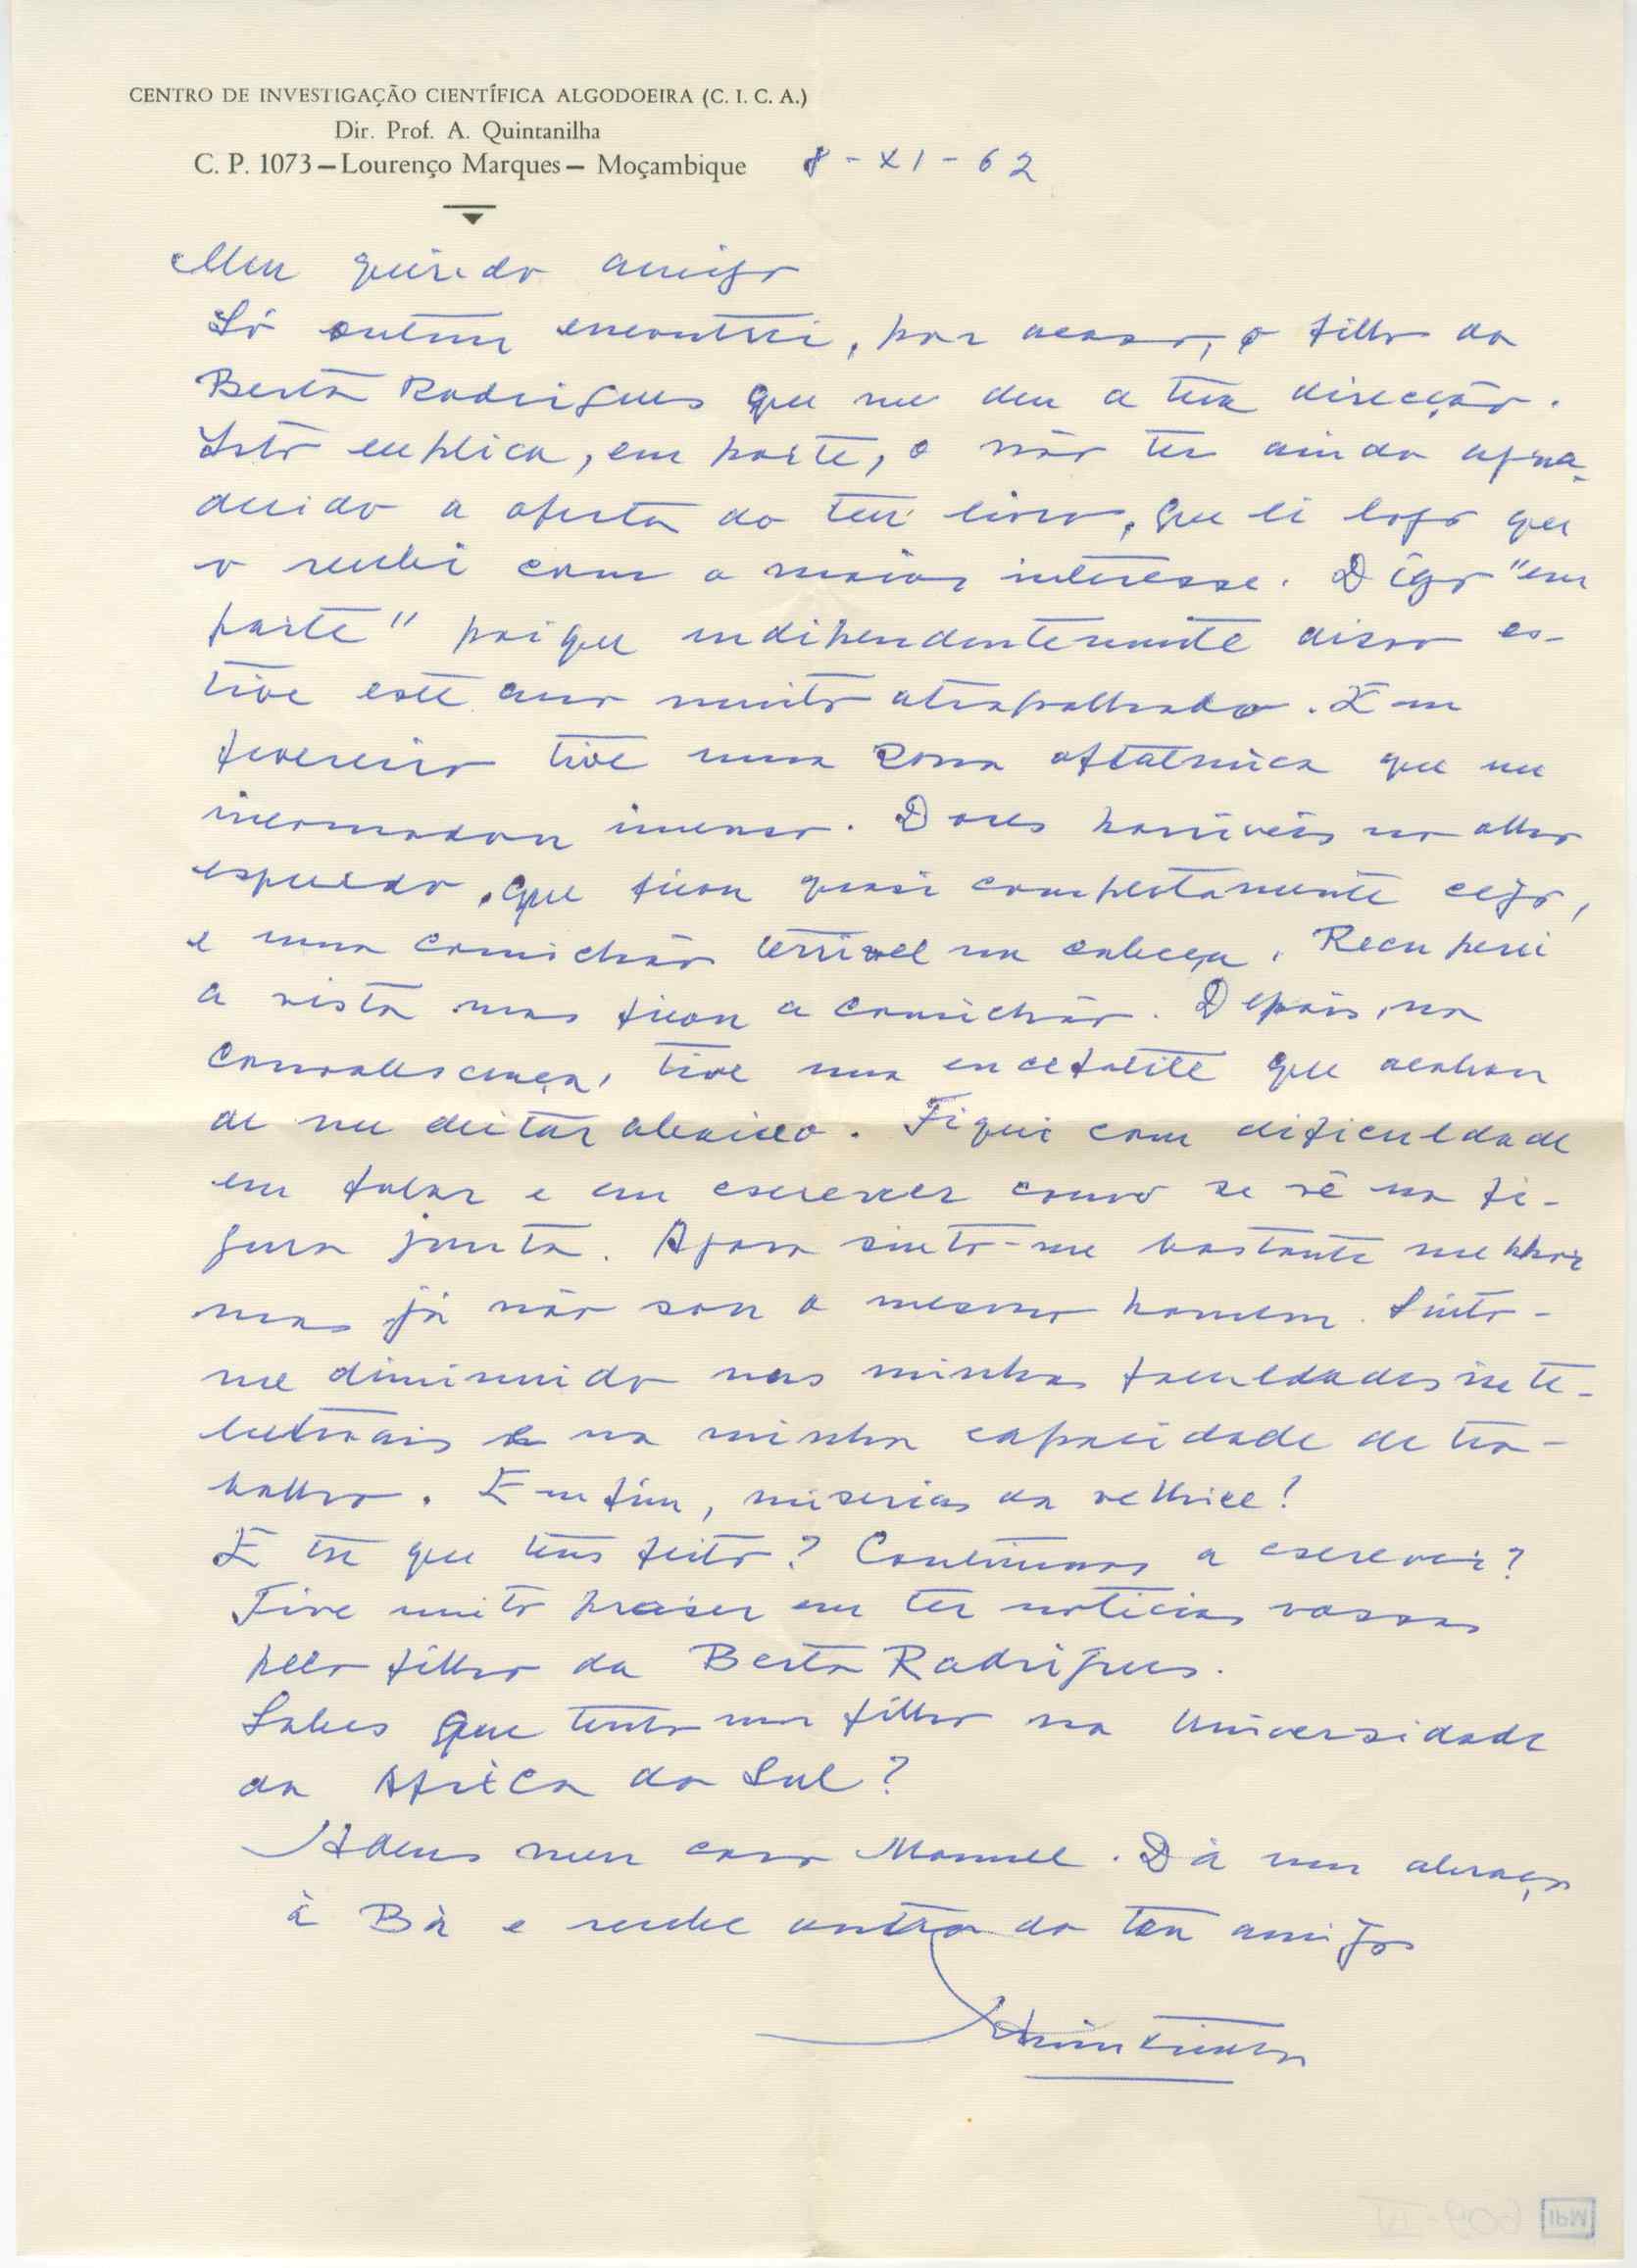 CENTRO DE INVESTIGAÇÃO CIENTÍFICA ALGODOEIRA (C. I. C. A.)
Dir. Prof. A. Quintanilha
C. P. 1073 — Lourenço Marques — Moçambique 8-XI-62
Meu querido amigo
Só ontem encontrei, por acaso, o filho da
Berta Rodrigues que me deu a tua direcção.
Isto explica, em parte, o não ter ainda agra-
decido a oferta do teu livro, que li logo que
o recebi com o maior interesse. Digo "em
parte" porque independentemente disso es-
tive este ano muito atrapalhado. Em
fevereiro tive uma zona oftalmica que me
incomodou imenso. Dores horriveis no olho
esquerdo, que ficou quasi completamente cego,
e uma comichão terrivel na cabeça. Recuperei
a vista mas ficou a comichão. Depois, na
convalescença, tive uma encefalite que acabou
de me deitar abaixo. Fiquei com dificuldade
em falar e em escrever como se vê na fi-
gura junta. Agora sinto-me bastante melhor
mas já não sou o mesmo homem. Sinto-
me diminuido nas minhas faculdades inte-
lectuais e na minha capacidade de tra-
balho. Emfim, miserias da velhice!
E tu que tens feito? Continuas a escrever?
Tive muito praser em ter noticias vossas
pelo filho da Berta Rodrigues.
Sabes que tenho um filho na Universidade
da Africa do Sul?
Adeus meu caro Manuel. Dá um abraço
à Bà e recebe outro do teu amigo
Quintanilha
IPM
609-IV